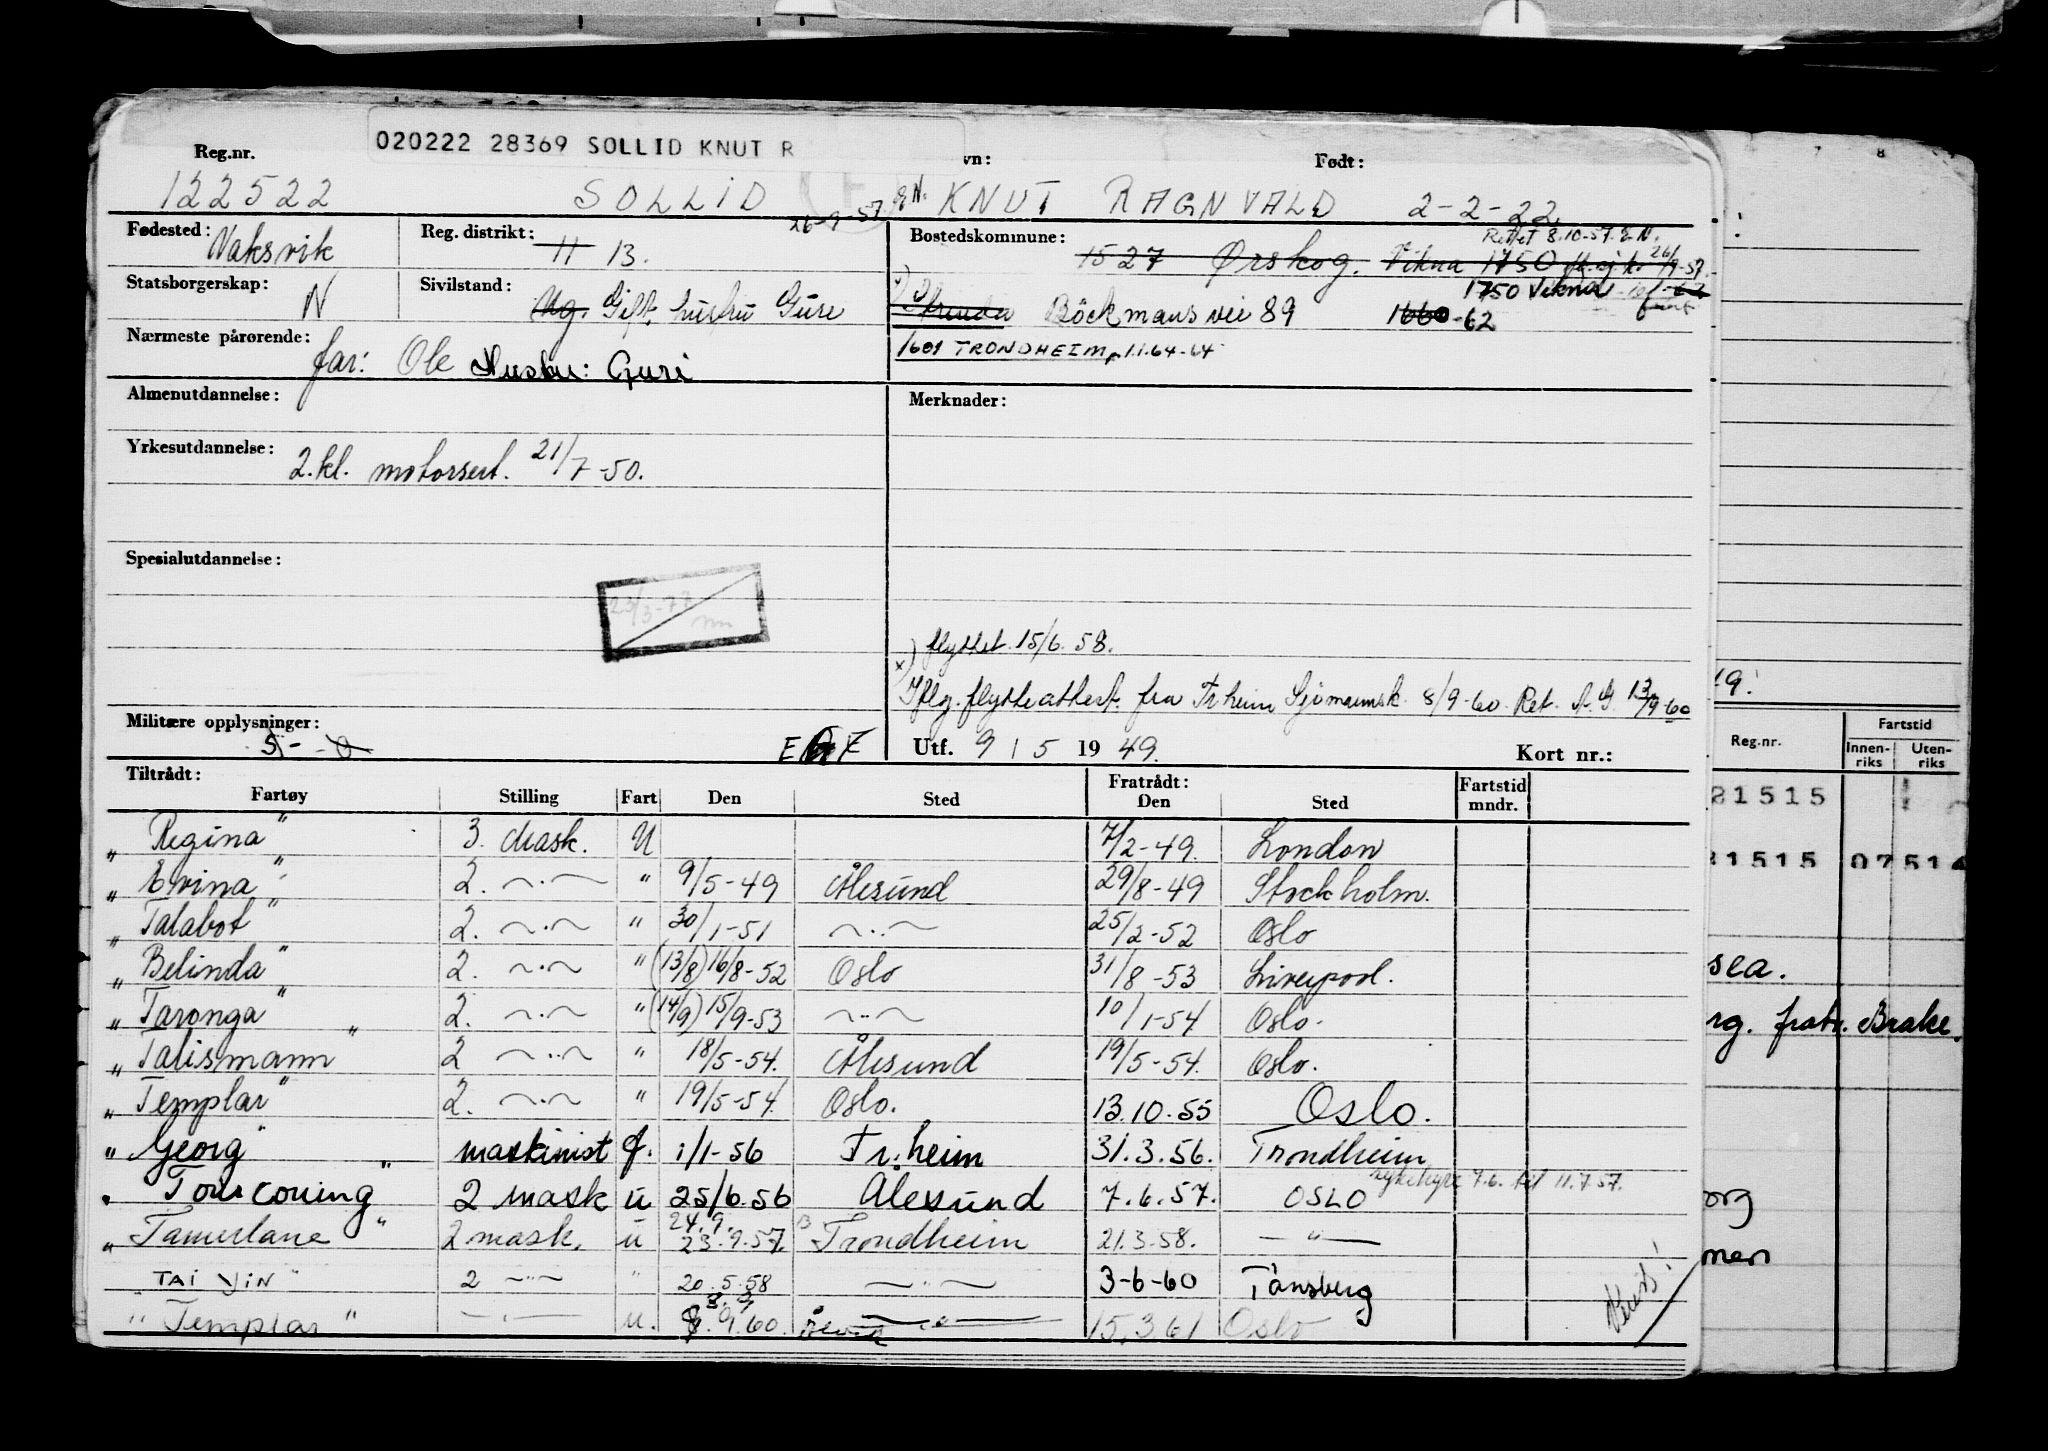 020222 28369 SOLLID KNUT R
Reg.nr. vn: Født:
122522 SOLLID KNUT RAGNVALD 2-2-22
Fødested: Vaksvik Reg. distrikt: 11 13. 26-9-57 Bostedskommune: 1527 Ørskog. Vikna 1750 26/9-57.
Rettet 8.10-57. E.N.
1750 Vikna
Statsborgerskap: N Sivilstand: Ug. Gift, hustru Guri Strinda Böckmans vei 89 1660-62
Nærmeste pårørende: far: Ole Hustru: Guri 1601 TRONDHEIM, 1.1.64-64
Almenutdannelse: Merknader:
Yrkesutdannelse: 2.kl. motorsert. 21/7-50.
Spesialutdannelse:
23/3-77
x) flyttet 15/6.58.
Iflg. flytteattest. fra Tr heim Sjömannsk. 8/9-60. Ret. 13/9-60
Militære opplysninger: Utf. 9 / 5 19 49. Kort nr.:
Tiltrådt: Fratrådt:
Fartøy Stilling Fart Den Sted Den Sted Fartstid mndr.
„ Regina" 3. Mask. U 7/2-49. London
„ Evina" 2. —·— " 9/5-49 Ålesund 29/8-49 Stockholm.
„ Talabot" 2. —·— " 30/1-51 —··— 25/2-52 Oslo
„ Belinda" 2. —·— " (13/8) 16/8-52 Oslo 31/8-53 Liverpool.
„ Taronga" 2. —·— " (14/9) 15/9-53 —··— 10/1-54 Oslo.
„ Talismann" 2 —··— " 18/5-54. Ålesund 19/5-54. Oslo.
„ Templar" 2. —·— " 19/5-54 Oslo. 13.10.55 Oslo.
" Georg" maskinist f. 1/1-56 Tr.heim 31.3.56. Trondheim
Tourcoing" 2 mask u 25/6.56 Ålesund 7.6.57. OSLO sykehyre 7.6. til 11.7.57.
24.9.
„ Tamerlane" 2 mask. u 23.9.57. Trondheim 21.3.58. —"—
TAI YIN" 2 —··— " 20.5.58 —··— 3-6-60 Tønsberg
" Templar" —··— u. 9.60. 15.3.61 Oslo
7 8
19.
Reg.nr. Fartstid
Innenriks Utenriks
21515
21515 07514
sea.
rg. fratr. Brake.
org
men